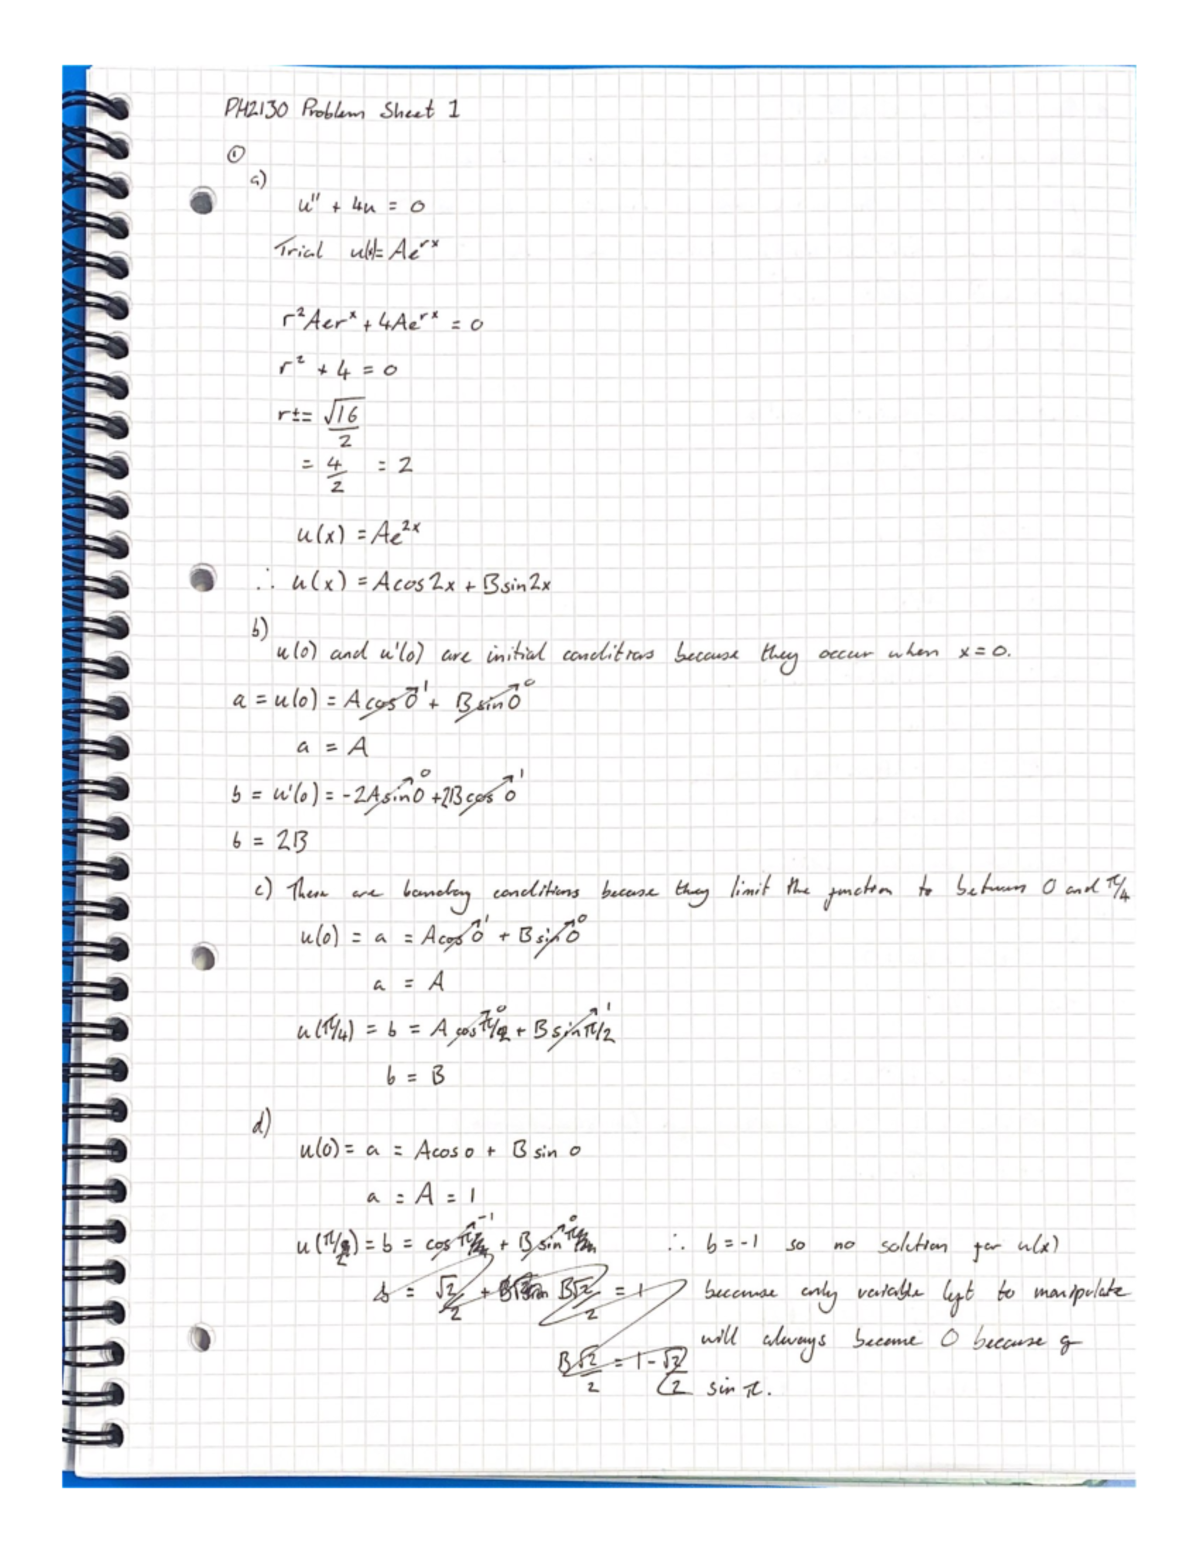 PH2130 Problem Sheet 1
①
a)
u'' + 4u = 0
Trial u(x)= Ae^{rx}
r²Aer^x + 4Ae^{rx} = 0
r² + 4 = 0
r±= √16/2
= 4/2 = 2
u(x) = Ae^{2x}
∴ u(x) = Acos2x + Bsin2x
b)
u(0) and u'(0) are initial conditions because they occur when x=0.
a = u(0) = Acos0 ¹ + Bsin0 ⁰
a = A
b = u'(0) = -2Asin0 ⁰ +2Bcos 0 ¹
b = 2B
c) These are boundary conditions because they limit the function to between 0 and π/4
u(0) = a = Acos0 ¹ + Bsin0 ⁰
a = A
u(π/4) = b = A cosπ/2 ⁰ + Bsinπ/2 ¹
b = B
d)
u(0) = a = Acos0 + B sin 0
a = A = 1
u(π/2) = b = cos π ⁻¹ + B sin π ⁰ ∴ b=-1 so no solution for u(x)
b = √2/2 + B√2/2 = 1 because only variable left to manipulate
will always become 0 because of
B√2/2 = 1-√2/2 sin π.